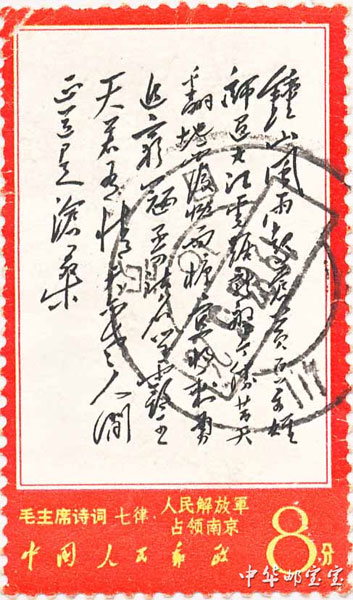 鐘山風雨起蒼黄百万雄
師過大江虎踞龍盤今勝昔天
翻地覆慨而慷宜將剩勇
追窮寇不可沽名學霸王
天若有情天亦老人間
正道是滄桑
毛主席诗词 七律 人民解放軍
占领南京
中国人民邮政
8分
中华邮宝宝